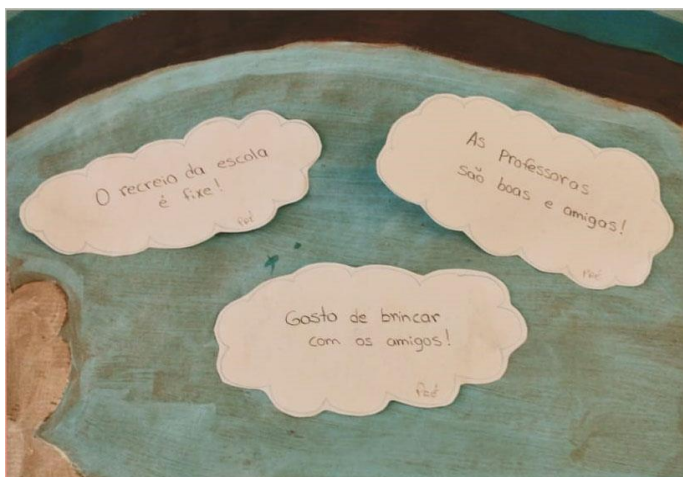 O recreio da escola
é fixe!
As Professoras
são boas e amigas!
Gosto de brincar
com os amigos!